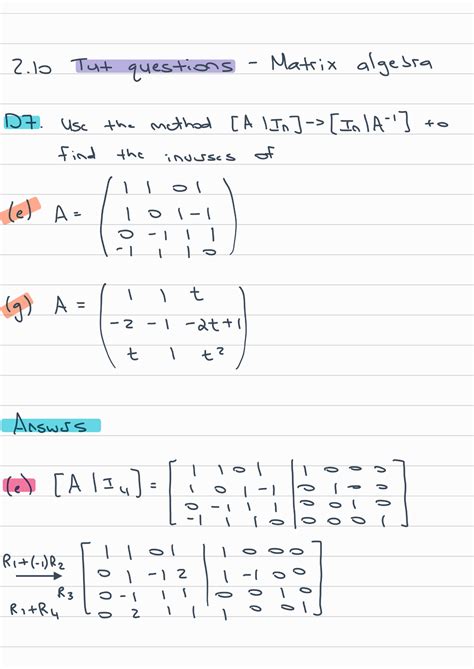 2.10 Tut questions - Matrix algebra
D7. Use the method [A | In] -> [In | A⁻¹] to
find the inverses of
(e) A =
1 1 0 1
1 0 1 -1
0 -1 1 1
-1 1 1 0
(g) A =
1 1 t
-2 -1 -2t+1
t 1 t²
Answers
(e) [A | I4] =
1 1 0 1 | 1 0 0 0
1 0 1 -1 | 0 1 0 0
0 -1 1 1 | 0 0 1 0
-1 1 1 0 | 0 0 0 1
R1+(-1)R2
R1+R4
R3
1 1 0 1 | 1 0 0 0
0 1 -1 2 | 1 -1 0 0
0 -1 1 1 | 0 0 1 0
0 2 1 1 | 1 0 0 1